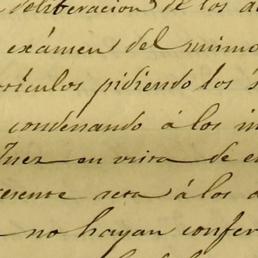 deliberacion de los
exámen del mismo
pidiendo los
condenando á los in
Juez en vista de
resente acta á los
no hayan confer